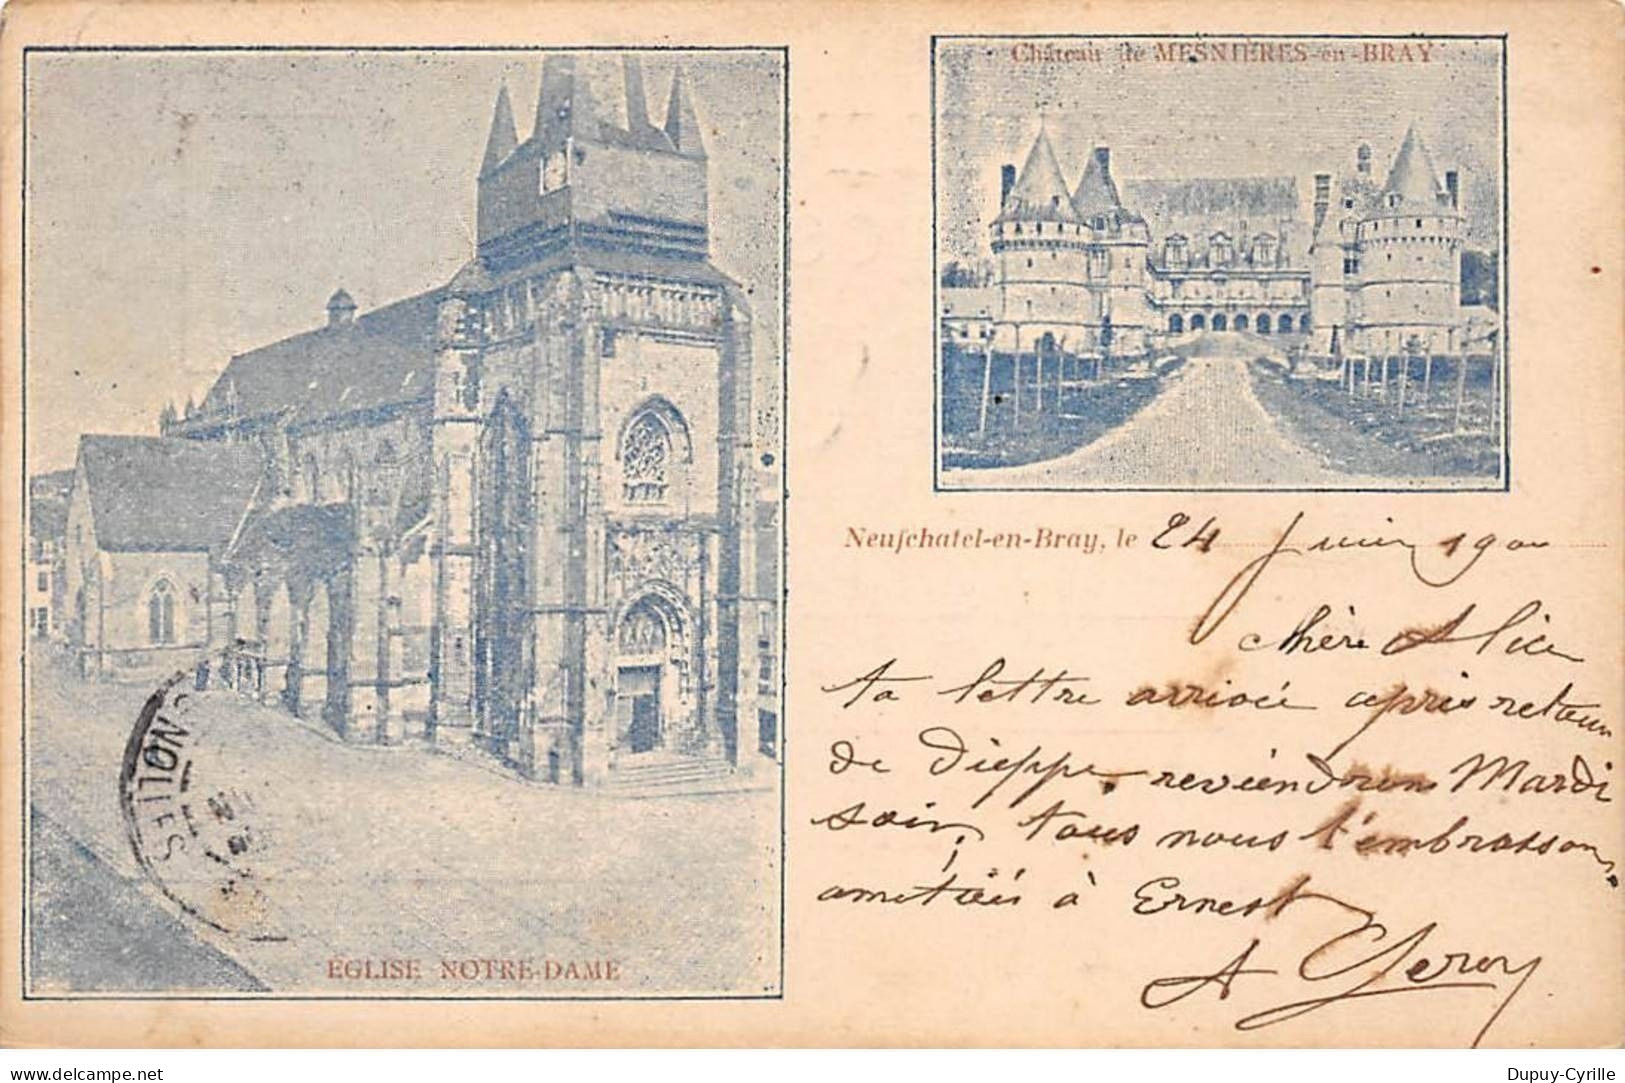 Château de MESNIÈRES-en-BRAY
Neufchatel-en-Bray, le 24 Juin 1900
chère Alice
ta lettre arrivée après retour
de Dieppe. reviendrons Mardi
soir, tous nous t'embrassons
amitiés à Ernest
A
ÉGLISE NOTRE-DAME
delcampe.net
Dupuy-Cyrille